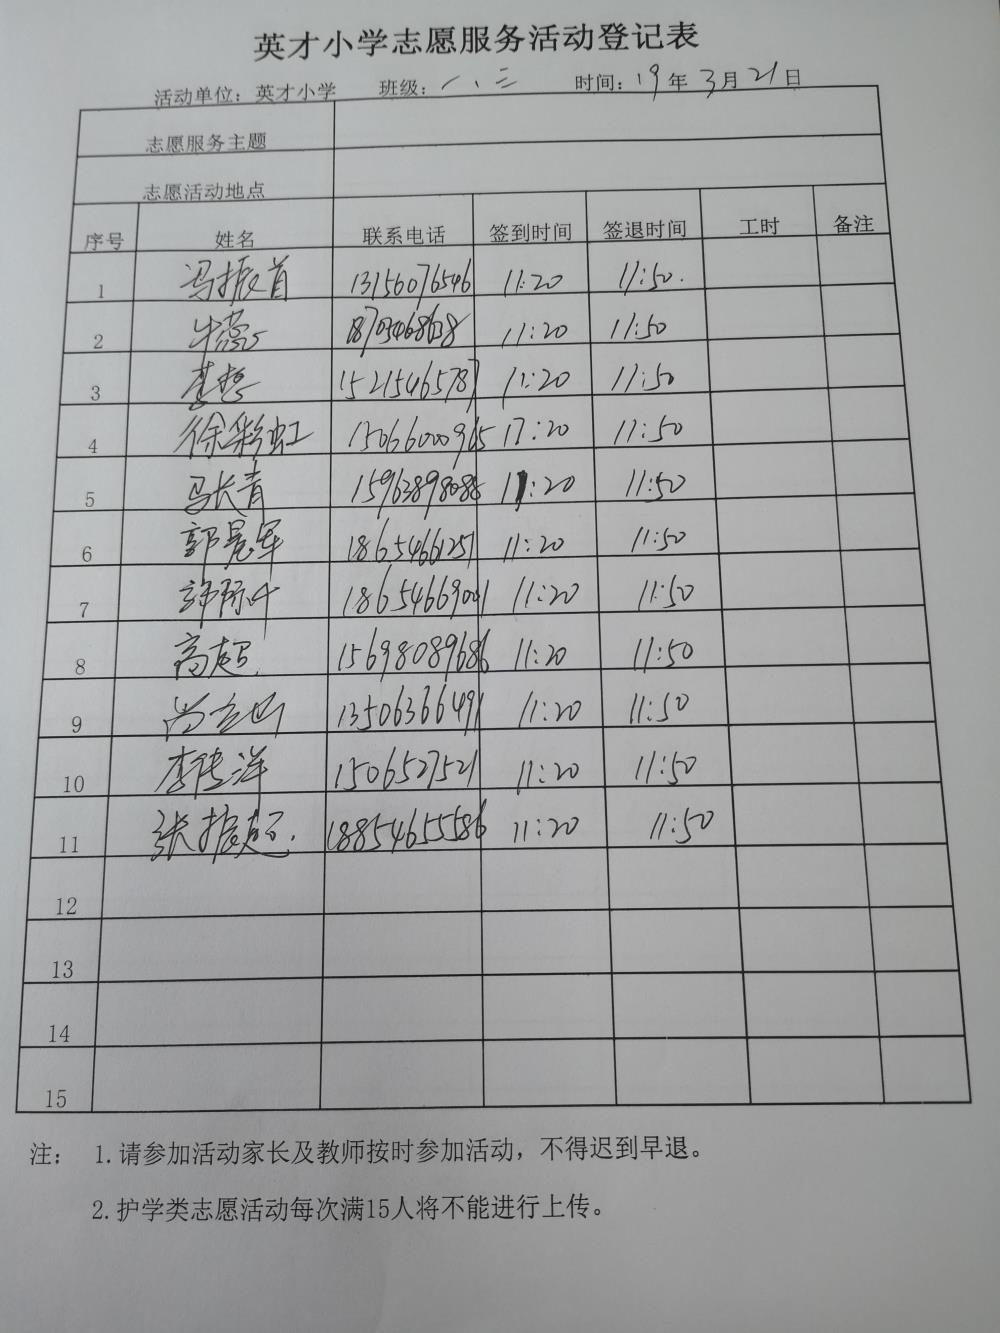 英才小学志愿服务活动登记表
活动单位：英才小学 班级：一、三 时间：19年3月21日
志愿服务主题
志愿活动地点
序号 姓名 联系电话 签到时间 签退时间 工时 备注
1 冯振首 13156076546 11:20 11:50.
2 牛蕊 18703468638 11:20 11:50
3 李哲 15215465787 11:20 11:50
4 徐彩虹 15066000965 17:20 11:50
5 马长青 15963898088 11:20 11:50
6 郭晁军 18654661251 11:20 11:50
7 11:20 11:50
8 高超 15698089686 11:20 11:50
9 13506366491 11:20 11:50
10 李传洋 1506527521 11:20 11:50
11 张振超. 18854655586 11:20 11:50
12
13
14
15
注： 1.请参加活动家长及教师按时参加活动，不得迟到早退。
2.护学类志愿活动每次满15人将不能进行上传。